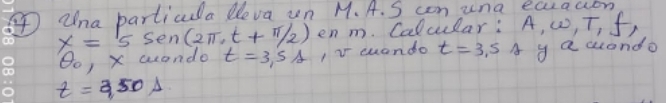 7) Una particula lleva un M.A.S con una ecuación
x = 5 sen(2π.t + π/2) en m. Calcular: A, ω, T, f,
θ₀, x cuando t = 3,5 s, v cuando t = 3,5 s y a cuando
t = 3,50 s.
08 08:01